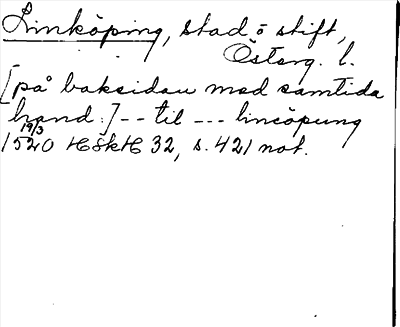 Linköping, stad o stift,
Österg. l.
[på baksidan med samtida
hand:] -- til --- lincöpung
19/3
1520 HSkH 32, s. 421 not.